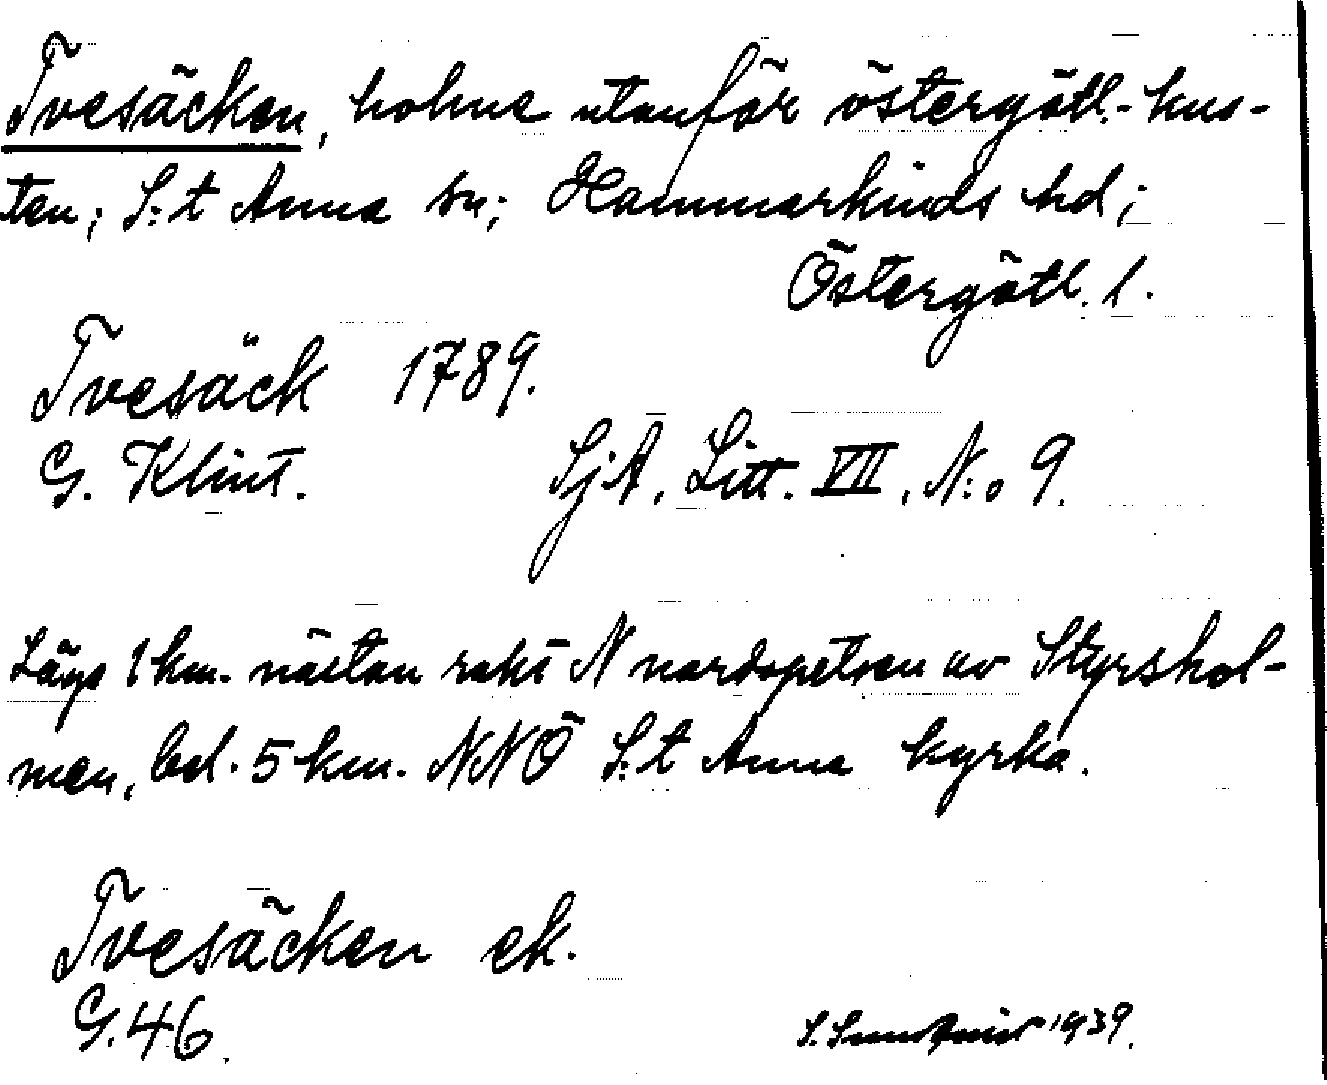 Tvesäcken, holme utanför östergötl.-kus-
ten; S:t Anna sn; Hammarkinds hd;
Östergötl. l.
Tvesäck 1789.
G. Klint. SjA, Litt. VII, N:o 9.
Läge 1 km. nästan rakt N nordspetsen av Styrshol-
men, bel. 5 km. NNÖ S:t Anna kyrka.
Tvesäcken ek.
G. 46.
1939.